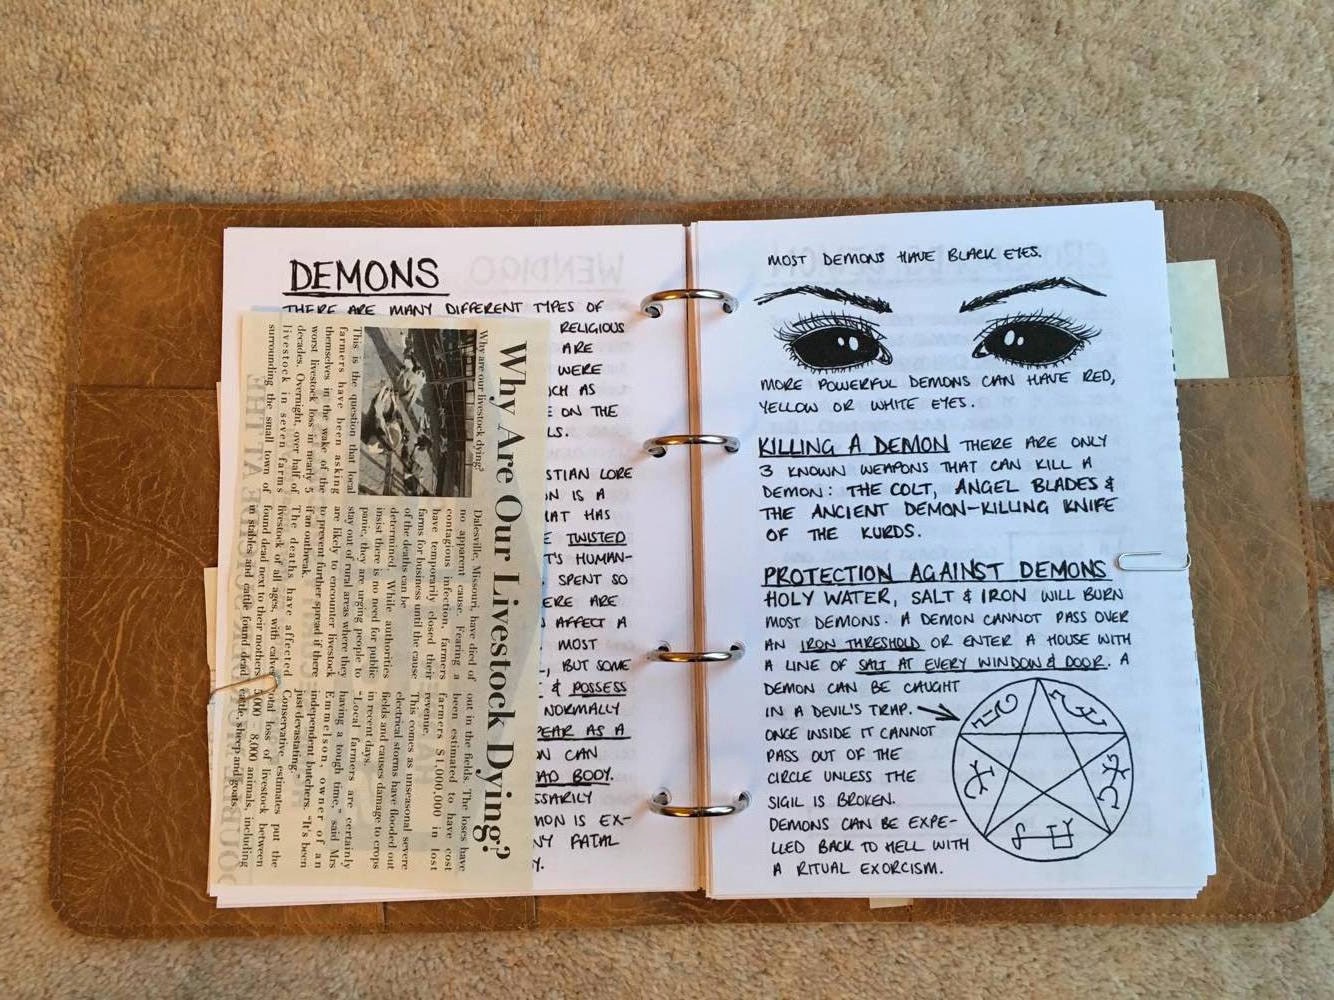 DEMONS
THERE ARE MANY DIFFERENT TYPES OF
RELIGIOUS
ARE
WERE
ON THE
STIAN LORE
IS A
HAS
TWISTED
HUMAN-
SPENT SO
ARE
AFFECT A
MOST
BUT SOME
& POSSESS
NORMALLY
AS A
CAN
BODY.
IS EX-
FATAL
Why Are Our Livestock Dying?
Why are our livestock dying?
This is the question that local
farmers have been asking
themselves in the wake of the
worst livestock loss in nearly 5
decades. Overnight, over half of
livestock in seven farms
surrounding the small town of
Dalesville, Missouri, have died of
no apparent cause. Fearing a
contagious infection, farmers
have temporarily closed their
farms for business until the cause
of the deaths can be
determined. While authorities
insist there is no need for public
panic, they are urging people to
stay out of rural areas where they
are likely to encounter livestock
to prevent further spread if there
if an outbreak.
The deaths have affected
livestock of all ages, with calves
found dead next to their mothers
in stables and cattle found dead
out in the fields. The loses have
been estimated to have cost
farmers $1,000,000 in lost
revenue.
This comes as unseasonal severe
electrical storms have flooded out
fields and causes damage to crops
in recent days.
"Local farmers are certainly
having a tough time," said Mrs
Emmelson, owner of an
independent butchers. "It's been
just devastating."
Conservative estimates put the
total loss of livestock between
5,000 - 8,000 animals, including
cattle, sheep and goats.
MOST DEMONS HAVE BLACK EYES.
MORE POWERFUL DEMONS CAN HAVE RED,
YELLOW OR WHITE EYES.
KILLING A DEMON THERE ARE ONLY
3 KNOWN WEAPONS THAT CAN KILL A
DEMON: THE COLT, ANGEL BLADES &
THE ANCIENT DEMON-KILLING KNIFE
OF THE KURDS.
PROTECTION AGAINST DEMONS
HOLY WATER, SALT & IRON WILL BURN
MOST DEMONS. A DEMON CANNOT PASS OVER
AN IRON THRESHOLD OR ENTER A HOUSE WITH
A LINE OF SALT AT EVERY WINDOW & DOOR. A
DEMON CAN BE CAUGHT
IN A DEVIL'S TRAP.
ONCE INSIDE IT CANNOT
PASS OUT OF THE
CIRCLE UNLESS THE
SIGIL IS BROKEN.
DEMONS CAN BE EXPE-
LLED BACK TO HELL WITH
A RITUAL EXORCISM.